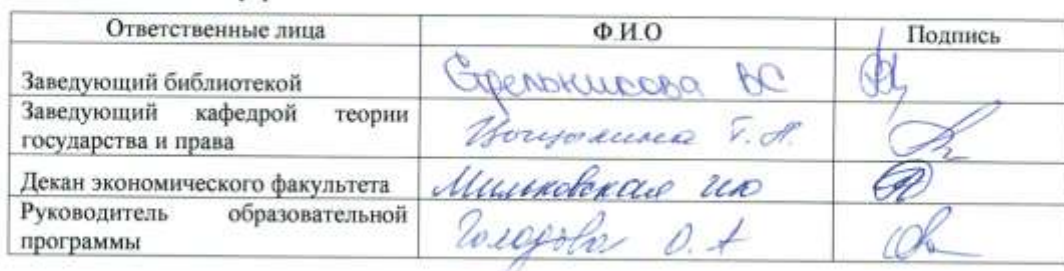 Ответственные лица Ф.И.О Подпись
Заведующий библиотекой Стрельникова ВС
Заведующий кафедрой теории
государства и права Т.Н.
Декан экономического факультета Мильковская ИЮ
Руководитель образовательной
программы О.А